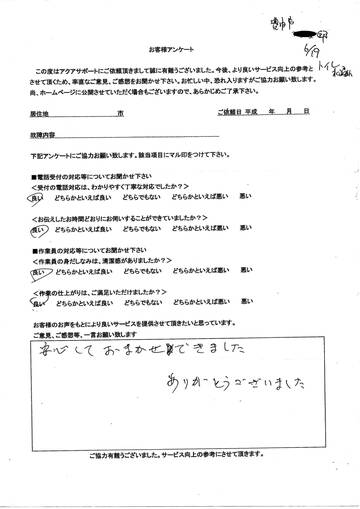 豊中市
邸
5/19
トイレ
お客様アンケート
この度はアクアサポートにご依頼頂きまして誠に有難うございました。今後、より良いサービス向上の参考と
させて頂くため、率直なご意見、ご感想をお聞かせ下さい。お忙しい中、恐れ入りますがご協力お願い致します。
尚、ホームページに公開させていただく場合もございますので、あらかじめご了承下さい。
居住地 市 ご依頼日 平成 年 月 日
故障内容
下記アンケートにご協力お願い致します。該当項目にマル印をつけて下さい。
■電話受付の対応等についてお聞かせ下さい
＜受付の電話対応は、わかりやすく丁寧な対応でしたか？＞
良い どちらかといえば良い どちらでもない どちらかといえば悪い 悪い
＜お伝えしたお時間どおりにお伺いすることができていましたか？＞
良い どちらかといえば良い どちらでもない どちらかといえば悪い 悪い
■作業員の対応等についてお聞かせ下さい
＜作業員の身だしなみは、清潔感がありましたか？＞
良い どちらかといえば良い どちらでもない どちらかといえば悪い 悪い
＜作業の仕上がりは、ご満足いただけましたか？＞
良い どちらかといえば良い どちらでもない どちらかといえば悪い 悪い
お客様のお声をもとにより良いサービスを提供させて頂きたいと思っています。
ご意見、ご感想等、一言お願い致します
安心しておまかせできました
ありがとうございました
ご協力有難うございました。サービス向上の参考にさせて頂きます。